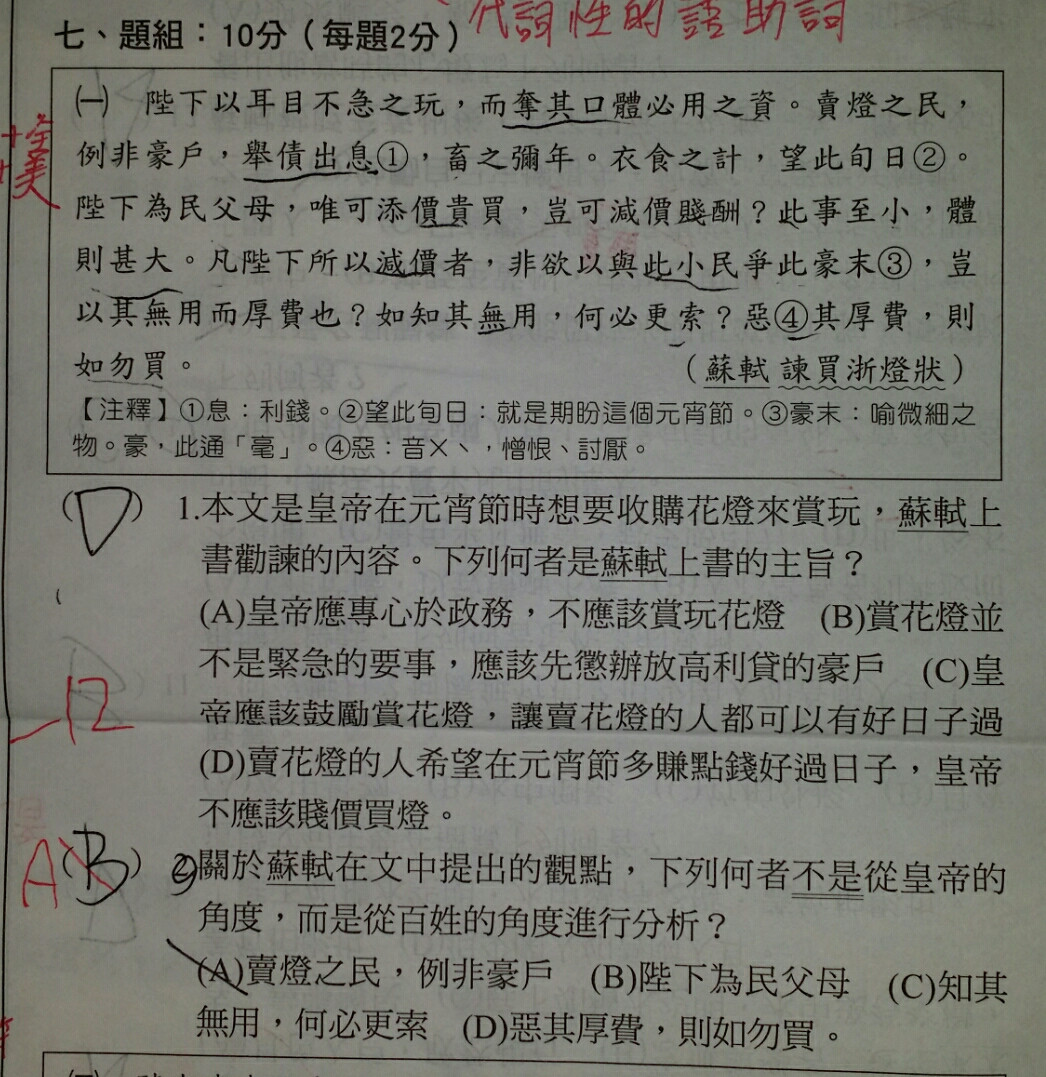 代詞性的語助詞
七、題組：10分（每題2分）
㈠ 陛下以耳目不急之玩，而奪其口體必用之資。賣燈之民，
例非豪戶，舉債出息①，畜之彌年。衣食之計，望此旬日②。
陛下為民父母，唯可添價貴買，豈可減價賤酬？此事至小，體
則甚大。凡陛下所以減價者，非欲以與此小民爭此豪末③，豈
以其無用而厚費也？如知其無用，何必更索？惡④其厚費，則
如勿買。 （蘇軾 諫買浙燈狀）
【注釋】①息：利錢。②望此旬日：就是期盼這個元宵節。③豪末：喻微細之
物。豪，此通「毫」。④惡：音ㄨˋ，憎恨、討厭。
(D) 1.本文是皇帝在元宵節時想要收購花燈來賞玩，蘇軾上
書勸諫的內容。下列何者是蘇軾上書的主旨？
(A)皇帝應專心於政務，不應該賞玩花燈 (B)賞花燈並
不是緊急的要事，應該先懲辦放高利貸的豪戶 (C)皇
帝應該鼓勵賞花燈，讓賣花燈的人都可以有好日子過
-12
(D)賣花燈的人希望在元宵節多賺點錢好過日子，皇帝
不應該賤價買燈。
A (B) 2.關於蘇軾在文中提出的觀點，下列何者不是從皇帝的
角度，而是從百姓的角度進行分析？
(A)賣燈之民，例非豪戶 (B)陛下為民父母 (C)知其
無用，何必更索 (D)惡其厚費，則如勿買。